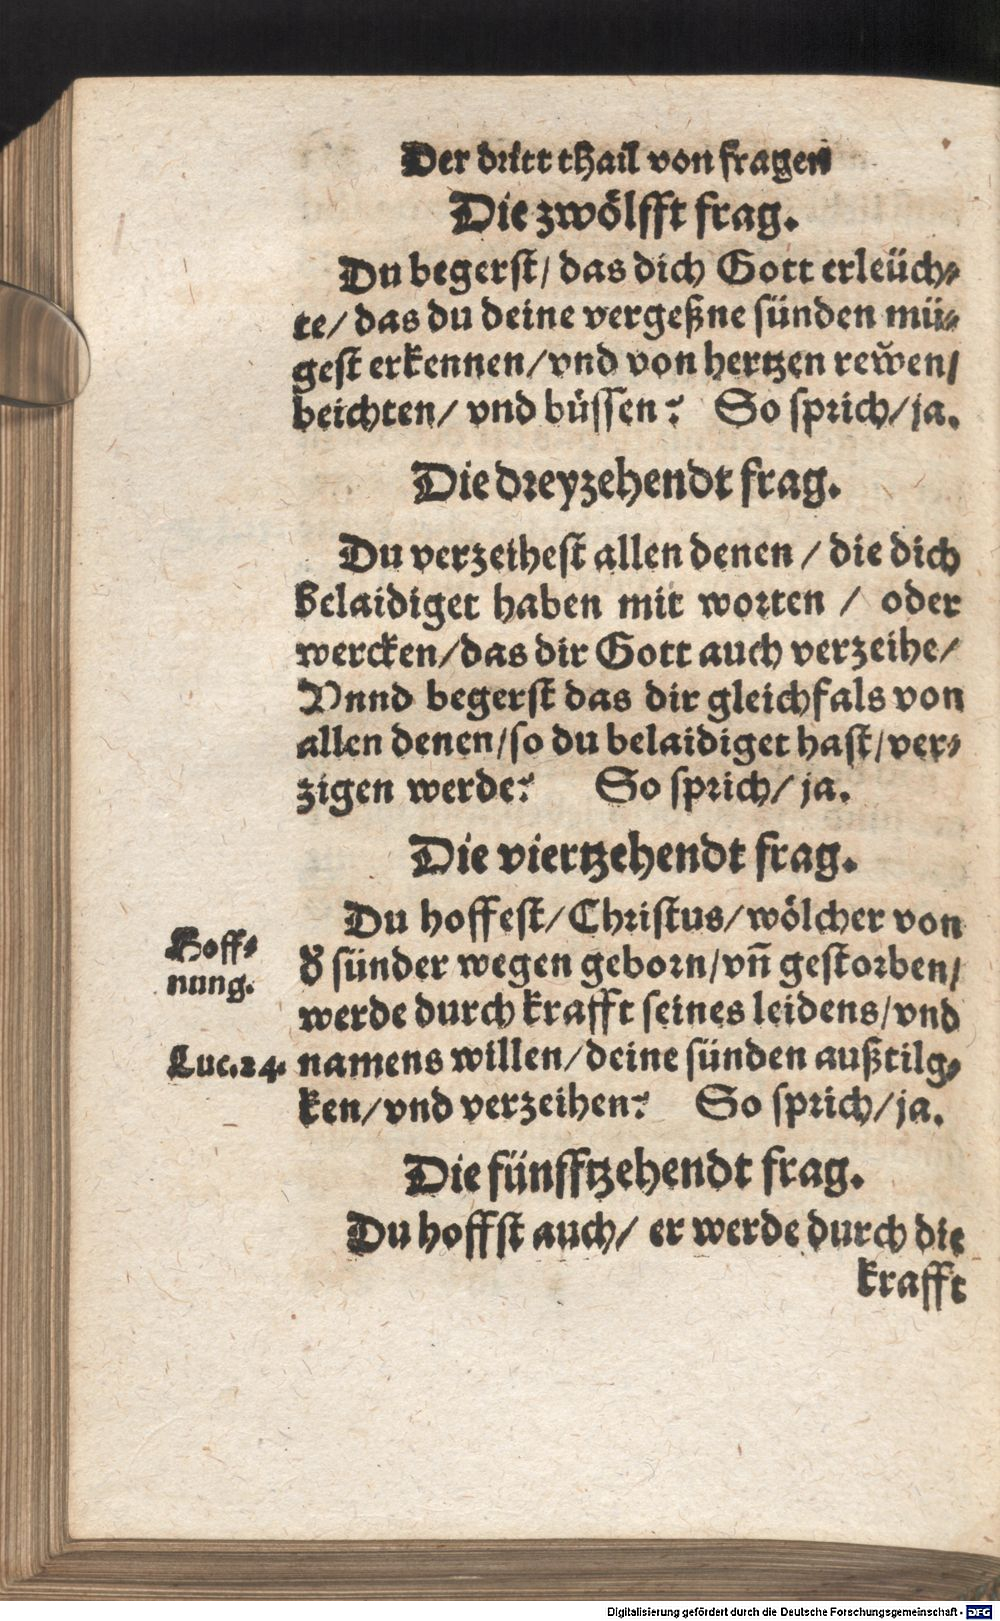 Der dritt thail von fragen
Die zwölfft frag.
Du begerst/ das dich Gott erleüch⸗
te/ das du deine vergeßne sünden mü⸗
gest erkennen/vnd von hertzen rew̆en/
beichten/ vnd büssen? So sprich/ja.
Die dreyzehendt frag.
Du verzeihest allen denen / die dich
belaidiget haben mit worten / oder
wercken/das dir Gott auch verzeihe/
Vnnd begerst das dir gleichfals von
allen denen/so du belaidiget hast/ver⸗
zigen werde? So sprich/ ja.
Die viertzehendt frag.
Du hoffest/Christus/wölcher von
Hoff⸗
nung.
d̕ sünder wegen geborn/vn̄ gestorben/
werde durch krafft seines leidens/vnd
Luc.24.
namens willen/deine sünden außtilg⸗
ken/vnd verzeihen? So sprich/ja.
Die fünfftzehendt frag.
Du hoffst auch/ er werde durch die
krafft
Digitalisierung gefördert durch die Deutsche Forschungsgemeinschaft - DFG